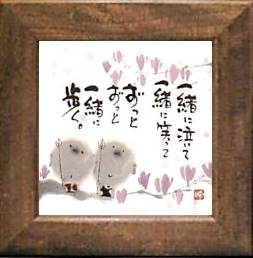 一緒に泣いて
一緒に笑って
ずっと
ずっと
一緒に
歩く。